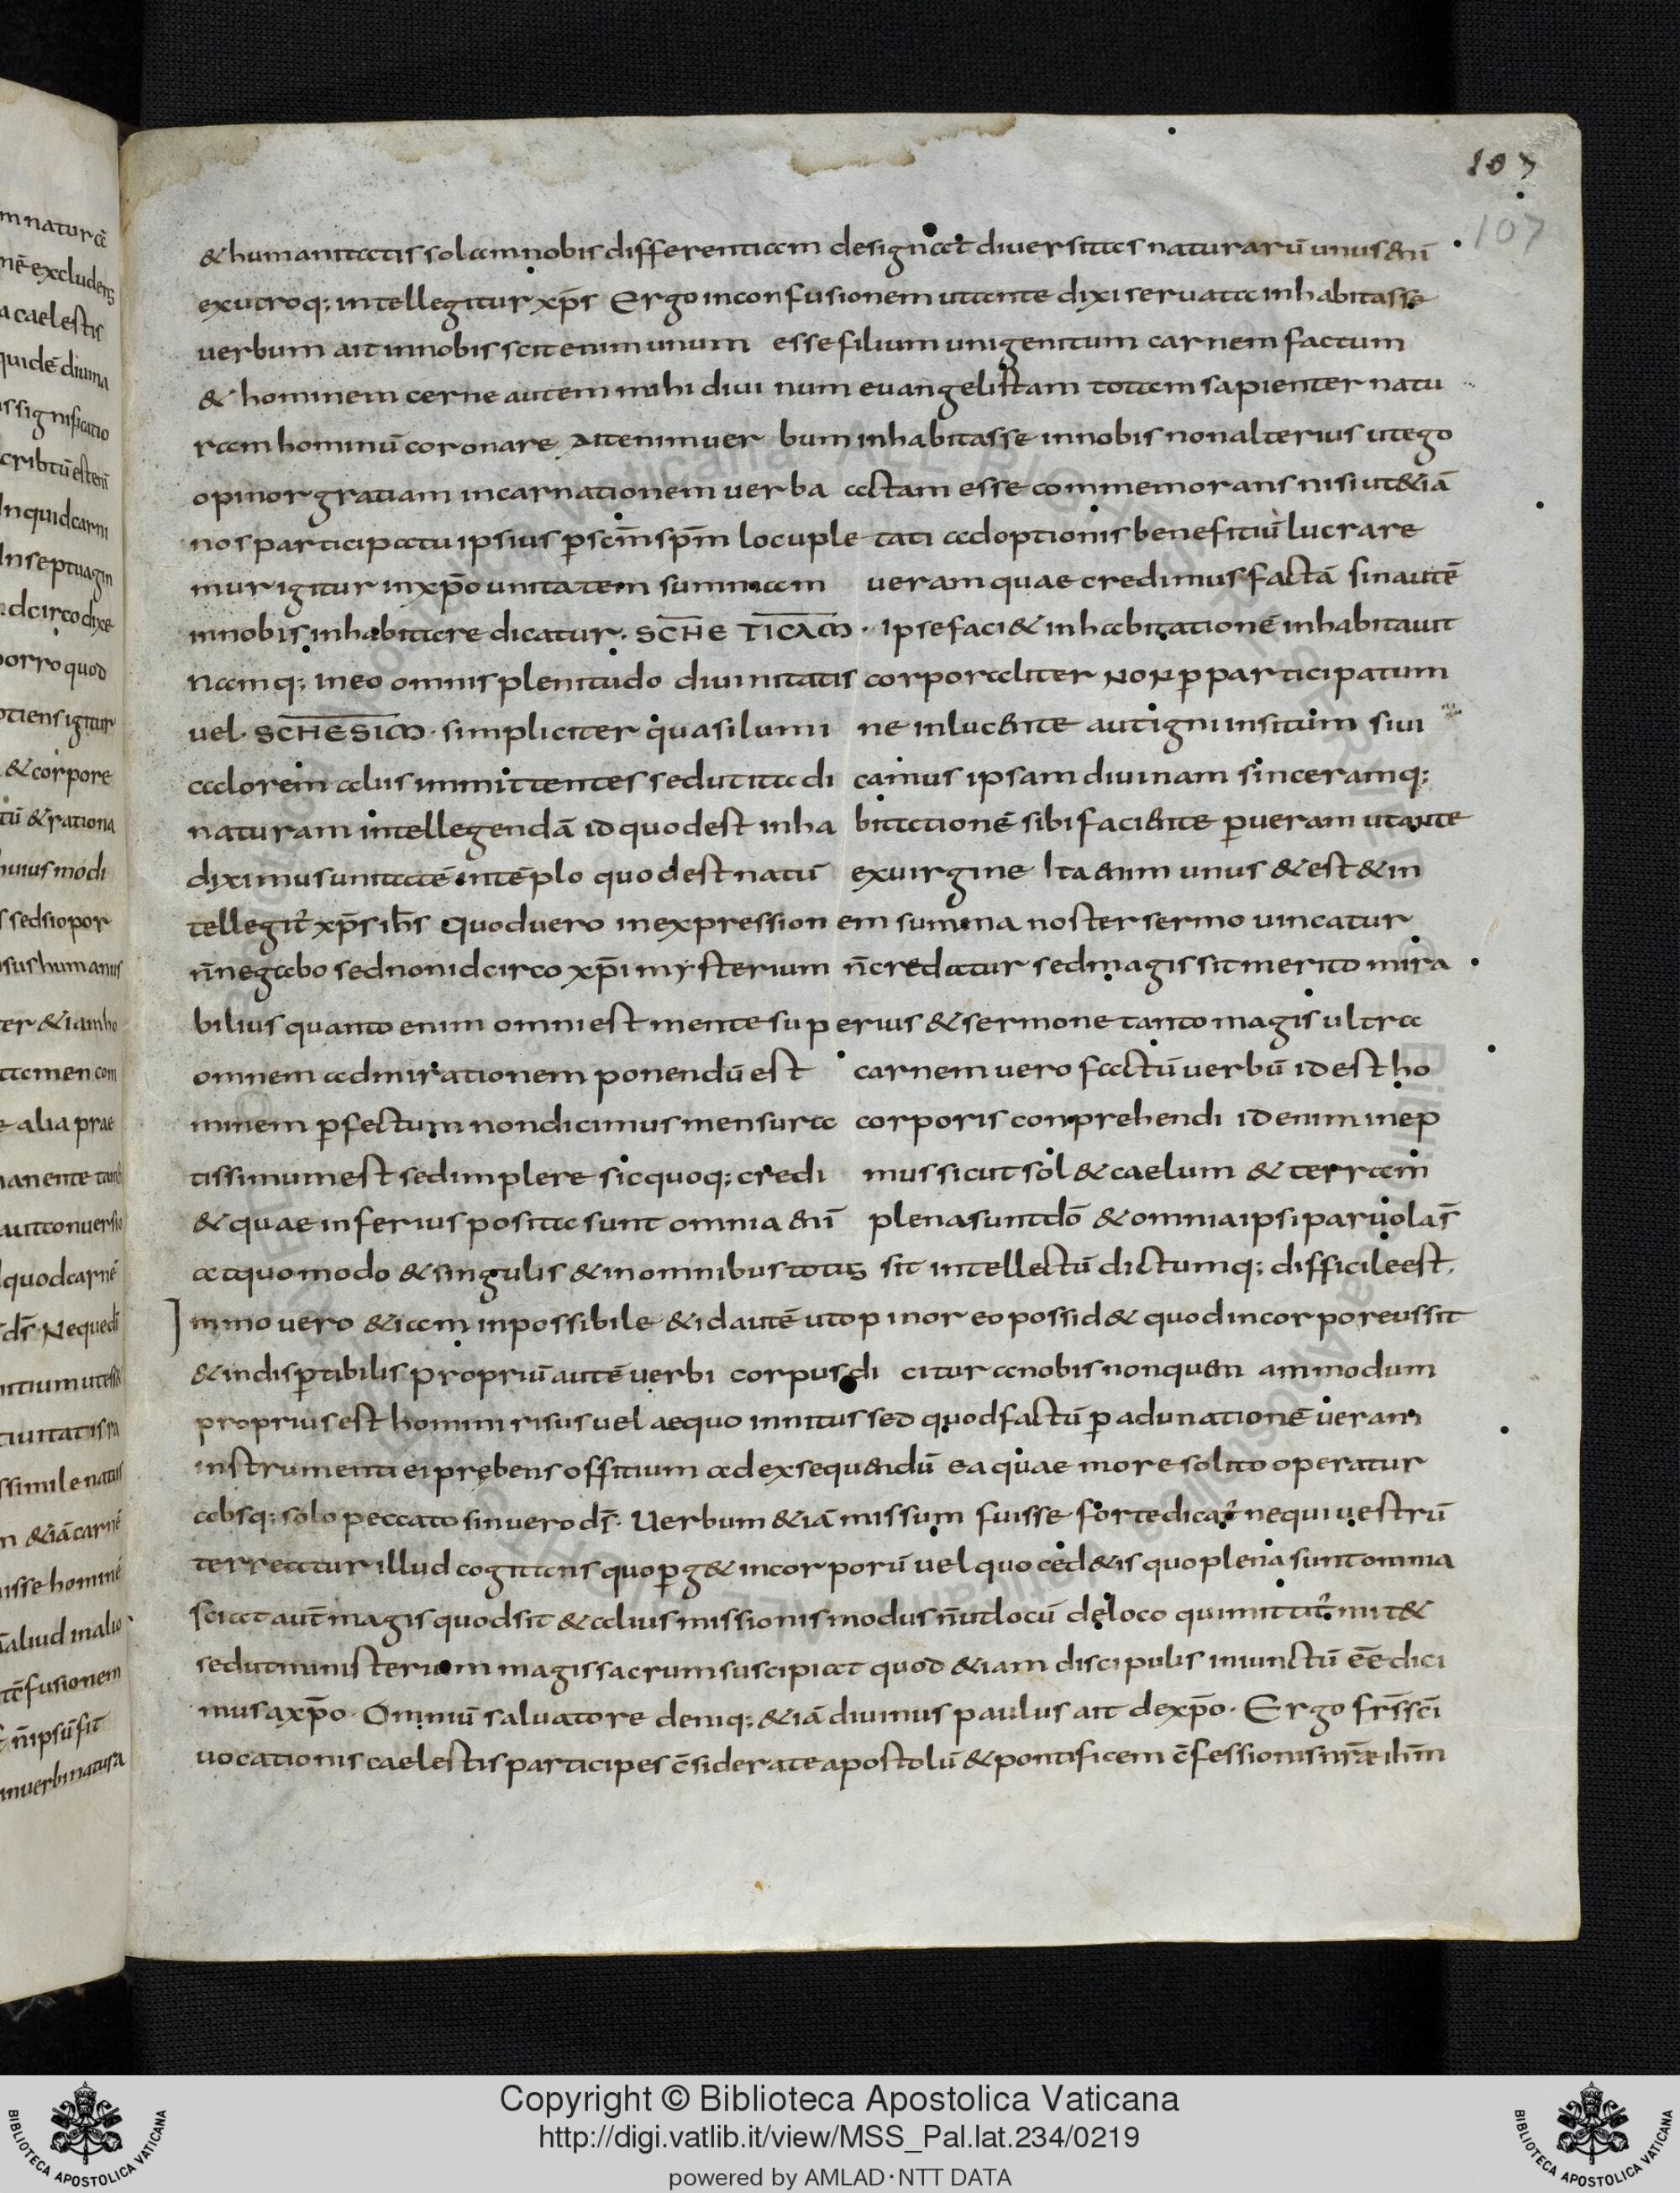 107
107
& humanitatis solam nobis differentiam designat diversitas naturarū unus enī
exutroq; intellegitur xp̄s Ergo inconfusionem utante dixi servata inhabitasse
verbum ait innobis scit enim unum esse filium unigenitum carnem factum
& hominem cerne autem mihi divi num evangelistam totam sapienter natu
ram hominū coronare Ait enim ver bum inhabitasse innobis non alterius ut ego
opinor gratiam incarnationem verba actam esse commemorans nisi ut &iā
nos participatu ipsius p̄ sc̄m sp̄m locuple tati adoptionis benefitiū lucrare
mur igitur inxp̄o unitatem summam veram quae credimus factā sin autē
innobis inhabitare dicatur. SCHE TICAM · ipse faci& inhabitationē inhabitavit
namq; ineo omnis plenitudo divinitatis corporaliter NON p̄ participatum
vel · SCHESIM · simpliciter quasi lumi ne inlucente aut igni insitum sivi
adorem aliis inmittentes sed ut ita di camus ipsam divinam sinceramq;
naturam intellegendā id quod est inha bitationē sibi faciente p̄ veram utante
diximus unitatē intēplo quod est natū ex virgine Ita enim unus & est & in
tellegit̄ xp̄s ih̄s Quod vero inexpression em summa noster sermo vincatur
n̄ negabo sed non idcirco xp̄i mysterium n̄ credatur sed magis sit merito mira
bilius quanto enim omni est mente sup erius & sermone tanto magis ultra
omnem admirationem ponendū est carnem vero factū verbū id est ho
minem p̄fectum non dicimus mensura corporis conprehendi id enim inep
tissimum est sed implere sic quoq; credi mus sicut sol & caelum & terram
& quae inferius posita sunt omnia enī plena sunt dō & omnia ipsi parvola s̄
at quomodo & singulis & in omnibus totus sit intellectū dictumq; difficile est.
Immo vero &iam inpossibile & id autē ut opinor eo possid& quod incorporeus sit
& indisp̄tibilis propriū autē verbi corpus di citur a nobis non quem ammodum
proprius est homini risus vel aequo innitus sed quod factū p̄ adunationē veram
instrumenti ei prębens offitium ad exsequendū ea quae more solito operatur
absq; solo peccato sin vero ds̄. Verbum &iā missum fuisse forte dicat̄ nequi vestrū
terreatur illud cogitans quo p̄g& incorporū vel quo ced& is quo plena sunt omnia
sciat aut̄ magis quod sit & alius missionis modus n̄ ut locū de loco qui mittit̄ mit&
sed ut ministerium magis sacrum suscipiat quod &iam discipulis iniunctū ēē dici
mus a xp̄o · Omniū salvatore deniq; &iā divinus paulus ait de xp̄o · Ergo fr̄s sc̄i
vocationis caelestis participes c̄siderate apostolū & pontificem c̄fessionis nr̄ae ihm̄
Copyright © Biblioteca Apostolica Vaticana
http://digi.vatlib.it/view/MSS_Pal.lat.234/0219
powered by AMLAD·NTT DATA
BIBLIOTECA APOSTOLICA VATICANA
BIBLIOTECA APOSTOLICA VATICANA